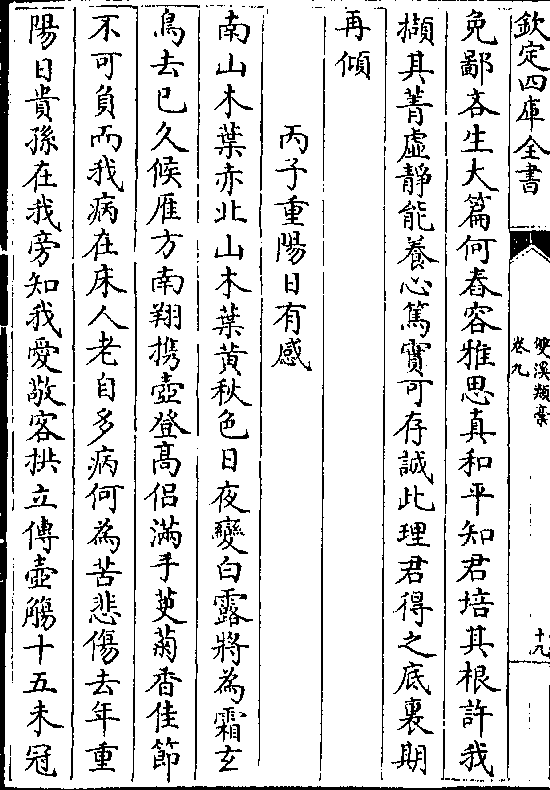 欽定四庫全書
雙溪類藁
卷九
十九
免鄙吝生大篇何舂容雅思真和平知君培其根許我
擷其菁虛靜能養心篤實可存誠此理君得之底裏期
再傾
丙子重陽日有感
南山木葉赤北山木葉黃秋色日夜變白露將為霜玄
鳥去已久候雁方南翔携壺登高侶滿手萸菊香佳節
不可負而我病在床人老自多病何為苦悲傷去年重
陽日貴孫在我旁知我愛敬客拱立傳壺觴十五未冠